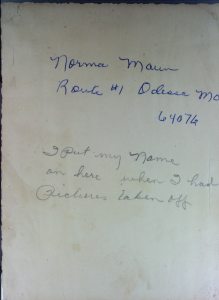 Norma Maun
Route #1 Odessa Mo
64076
I Put my Name
on here when I had
Pictures taken off